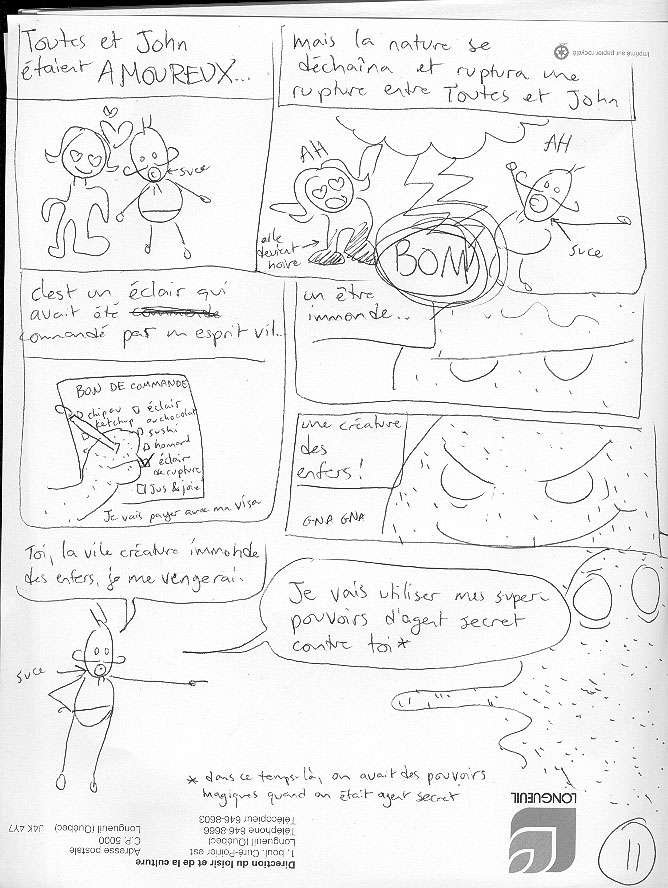 Toutes et John
étaient AMOUREUX...
mais la nature se
déchaîna et ruptura une
rupture entre Toutes et John
Imprimé sur papier recyclé
suce
AH
AH
elle
devient
noire
BOM
suce
c'est un éclair qui
avait été
commandé par un esprit vil...
BON DE COMMANDE
chip au
ketchup
éclair
au chocolat
sushi
homard
éclair
de rupture
Jus & joie
Je vais payer avec ma visa
un être
immonde...
une créature
des
enfers!
GNA GNA
Toi, la vile créature immonde
des enfers, je me vengerai.
Je vais utiliser mes super-
pouvoirs d'agent secret
contre toi*
suce
* dans ce temps-là, on avait des pouvoirs
magiques quand on était agent secret
Direction du loisir et de la culture
1, boul. Curé-Poirier est
Longueuil (Québec)
Téléphone 646-8666
Télécopieur 646-8603
Adresse postale
C.P. 5000
Longueuil (Québec)
J4K 4Y7
LONGUEUIL
11